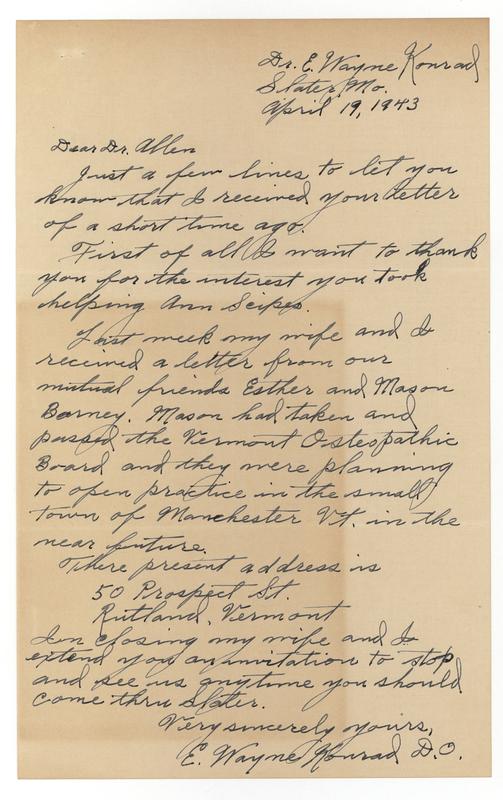 Dr. E. Wayne Konrad
Slater, Mo.
April 19, 1943
Dear Dr. Allen
Just a few lines to let you
know that I received your letter
of a short time ago.
First of all I want to thank
you for the interest you took
helping Ann Scipes.
Last week my wife and I
received a letter from our
mutual friends Esther and Mason
Barney. Mason had taken and
passed the Vermont Osteopathic
Board and they were planning
to open practice in the small
town of Manchester Vt. in the
near future.
There present address is
50 Prospect St.
Rutland, Vermont
In closing my wife and I
extend you an invitation to stop
and see us anytime you should
come thru Slater.
Very sincerely yours,
E. Wayne Konrad D.O.